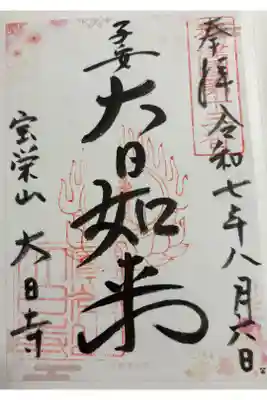 奉拝 令和七年八月六日
子安
大日如来
宝栄山 大日寺